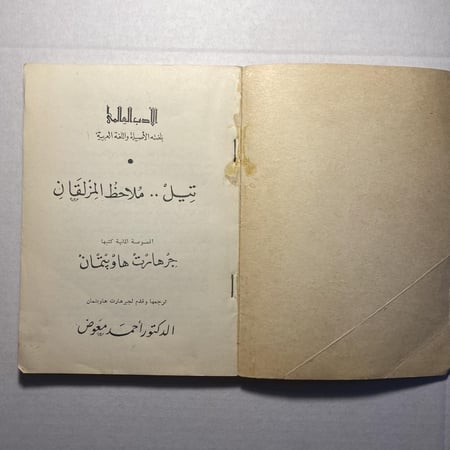 الأدب العالمي
بلغته الأصيلة واللغة العربية
تيل .. ملاحظ المزلقان
اقصوصة المانية كتبها
جرهارت هاوبتمان
ترجمها وقدم لجيرهارت هاوبتمان
الدكتور أحمد معوض